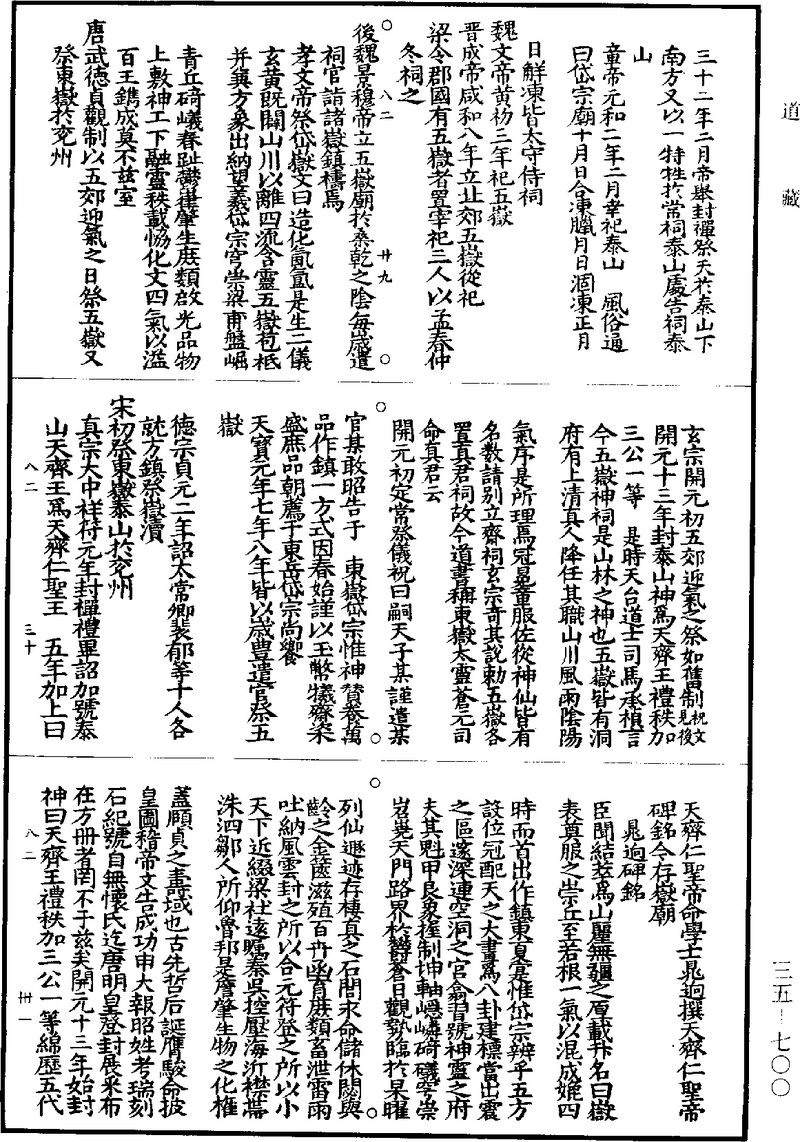 道藏
三十二年二月帝舉封禪祭天於泰山下
南方又以一特牲於常祠泰山處告祠泰
山
童帝元和二年二月幸祀泰山　風俗通
曰岱宗廟十月日合凍臘月日涸凍正月
日鮮凍皆太守侍祠
魏文帝黃初三年祀五嶽
晉成帝咸和八年立北郊五嶽從祀
梁令郡國有五嶽者置宰祀三人以孟春仲
冬祠之
八二　廿九
後魏景穆帝立五嶽廟於桑乾之陰每歲遣
祠官詣諸嶽鎮禱焉
孝文帝祭岱嶽文曰造化氤氳是生二儀
玄黃既闢山川以離四流含靈五嶽苞秪
并輿方象出納望義岱宗穹崇粱甫盤崛
青丘碕嶬春趾鬱嵂肇生庶類啟光品物
上敷神工下融靈秩載恊化文四氣以溢
百王鐫成莫不茲室
唐武德貞觀制以五郊迎氣之日祭五嶽又
祭東嶽於兖州
玄宗開元初五郊迎氣之祭如舊制祝文見後
開元十三年封泰山神爲天齊王禮秩加
三公一等　是時天台道士司馬承禎言
今五嶽神祠是山林之神也五嶽皆有洞
府有上清真人降任其職山川風雨陰陽
氣序是所理焉冠冕章服佐從神仙皆有
名數請別立齋祠玄宗奇其說勅五嶽各
置真君祠故今道書稱東嶽太靈蒼元司
命真君云
開元初定常祭儀祝曰嗣天子某謹遣某
官某敢昭告于　東嶽岱宗惟神贊養萬
品作鎮一方式因春始謹以玉幣犧齊粢
盛庶品朝薦于東岳岱宗尚饗
天寶元年七年八年皆以歲豊遣官祭五
嶽
德宗貞元二年詔太常卿裴郁等十人各
就方鎮祭嶽瀆
宋初祭東嶽泰山於兖州
真宗大中祥符元年封禪禮畢詔加號泰
山天齊王爲天齊仁聖王　五年加上曰
八二　三十
天齊仁聖帝命學士晁逈撰天齊仁聖帝
碑銘今存嶽廟
晁逈碑銘
臣聞結莖爲山麗無疆之厚載升名曰嶽
表奠服之崇丘至若根一氣以混成媲四
時而首出作鎮東夏寔惟岱宗辨乎五方
設位冠配天之大畫爲八卦建標當出震
之區邃深連空洞之宫翕習號神靈之府
夫其魁甲艮象控制坤軸嶾嶙碕礒穹崇
岧嶤天門路界於鬱蒼日觀勢臨於杲曜
列仙遯迹存棲真之石閭求命儲休閟與
齡之金篋滋殖百卉幽育庶類畜泄雷雨
吐納風雲封之所以合元符登之所以小
天下近綴粱社遠矚秦吳控壓海沂襟帶
洙泗鄒人所仰魯邦是詹肇生物之化權
蓋頤貞之壽域也古先哲后誕膺駿命披
皇圖稽帝文告成功申大報昭姓考瑞刻
石紀號自無懷氏迄唐明皇登封展采布
在方冊者罔不于茲矣開元十三年始封
神曰天齊王禮秩加三公一等綿歷五代
八二　卅一
三五—七〇〇